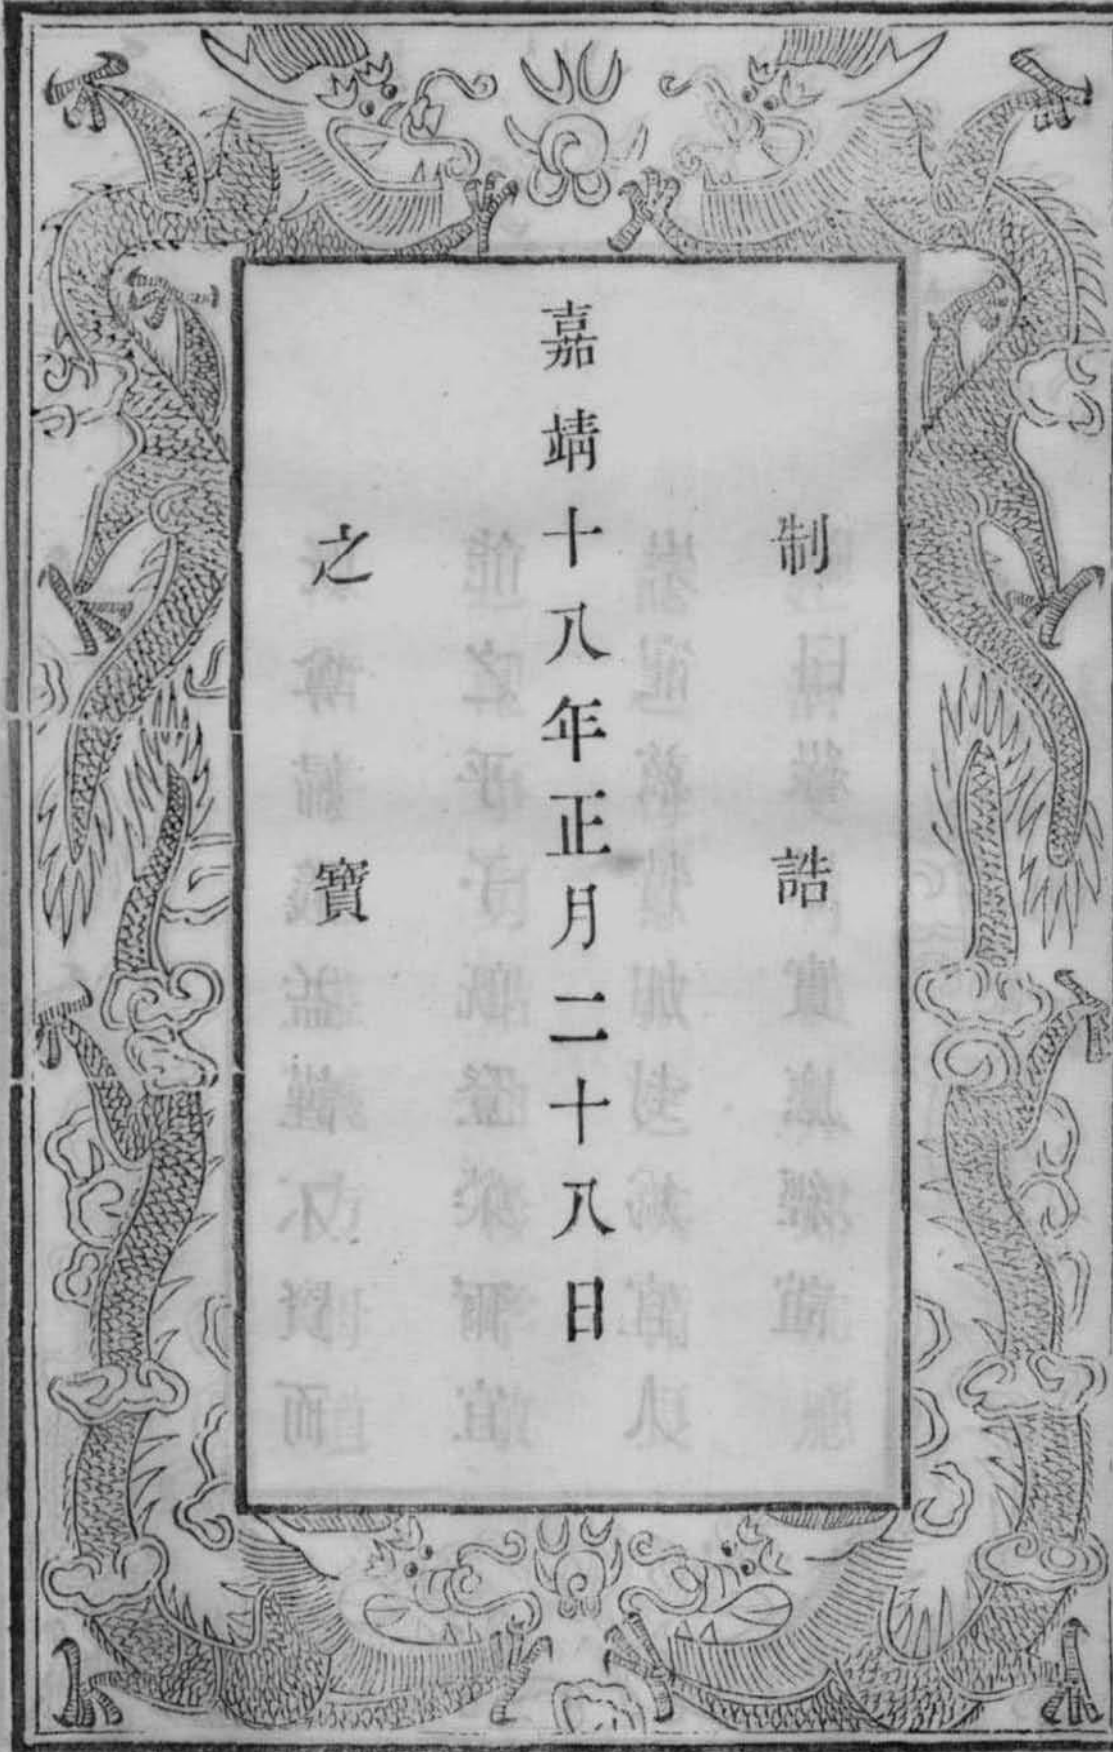 制誥
嘉靖十八年正月二十八日
之寶